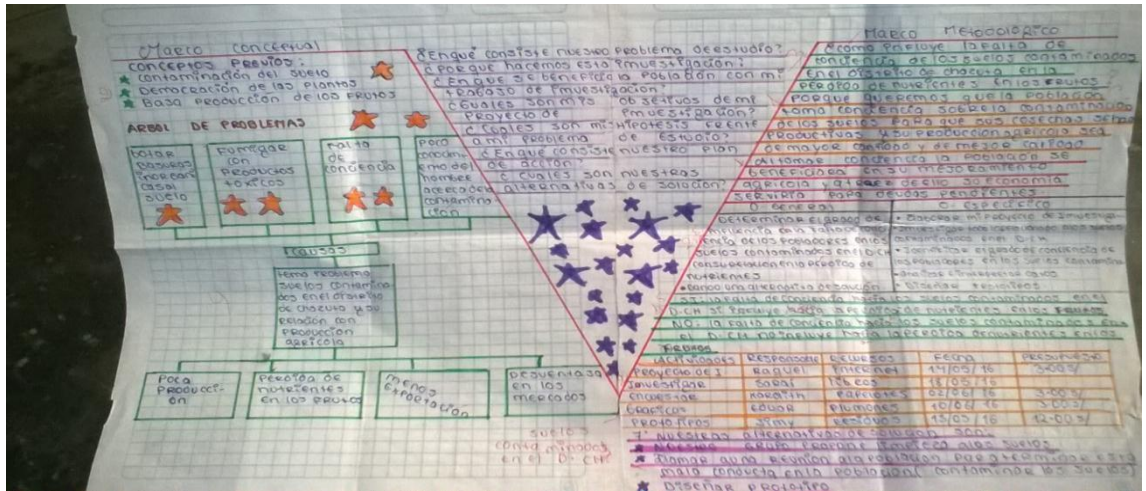 Marco conceptual
conceptos previos:
contaminación del suelo
Democración de las plantas
Baja producción de los frutos
ARBOL DE PROBLEMAS
botar basuras inorganicas al suelo
Fumigar con productos toxicos
Falta de conciencia
poco conocimiento del hombre acerca de la contaminación
causas
tema problema
suelos contaminados en el distrito
de chacuta y su
relación con
producción
agricola
poca producción
perdida de nutrientes en los frutos
menos exportacion
desventaja en los mercados
suelos
contaminados
en el D-CH
¿En qué consiste nuestro problema de estudio?
¿Por que hacemos esta investigacion?
¿En que se beneficia la población con mi
trabajo de investigacion?
¿Cuales son mis objetivos de mi
proyecto de investigacion?
¿Cuales son mis hipotesis frente
a mi problema de estudio?
¿En que consiste nuestro plan
de acción?
¿Cuales son nuestras
alternativas de solucion?
Marco Metodologico
¿como influye la falta de
conciencia de los suelos contaminados
en el distrito de chacuta en la
perdida de nutrientes en los frutos
porque queremos que la población
toma conciencia sobre la contaminación
de los suelos para que sus cosechas sean
productivas y su produccion agricola sea
de mayor cantidad y de mejor calidad
Al tomar conciencia la población se
beneficiara en su mejoramiento
agricola y atraves de ello su economia
servira para deudas pendientes
O- General
O- especifico
Determinar el grado de
suelos contaminados en el D-CH
nutrientes
SI: la falta de conciencia hacia los suelos contaminados en el
D-CH si influye hacia la perdida de nutrientes en los frutos
NO: la falta de conciencia hacia los suelos contaminados en
el D-CH no influye hacia la perdida de nutrientes en los
frutos
Actividades Responsable Recursos Fecha Presupuesto
Proyecto de I Raquel internet 14/05/16 3.00s/
Investigar Sarai libros 18/05/16
encuestar papelotes 02/06/16 3.00s/
Graficos Edwar plumones 10/06/16 3.00s/
prototipos Jimy residuos 15/05/16 12.00s/
7° Nuestras alternativas de solucion son:
llamar a una reunion a la población para terminar esta
mala conducta en la población (contaminar los suelos)
Diseñar prototipo